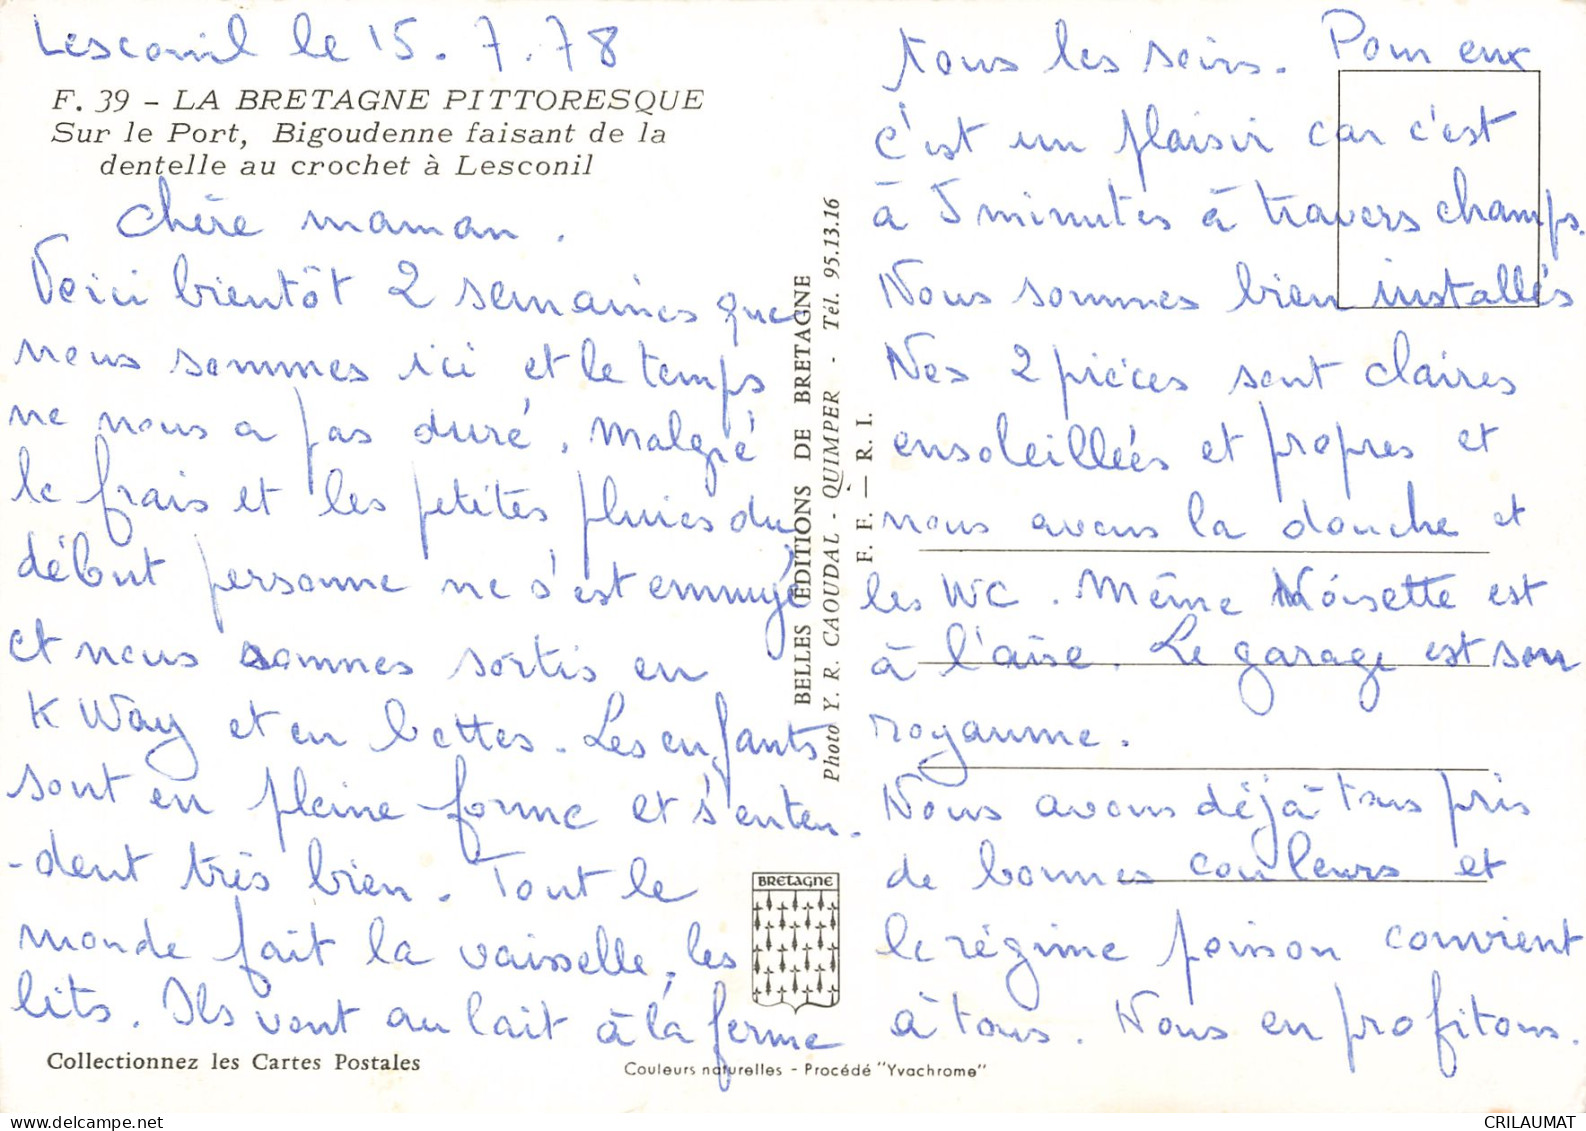 Lesconil le 15.7.78
F. 39 - LA BRETAGNE PITTORESQUE
Sur le Port, Bigoudenne faisant de la
dentelle au crochet à Lesconil
Chère maman.
Voici bientôt 2 semaines que
nous sommes ici et le temps
ne nous a pas duré. Malgré
le frais et les petites pluies du
début personne ne s'est ennuyé
et nous sommes sortis en
K Way et en bottes. Les enfants
sont en pleine forme et s'enten-
-dent très bien. Tout le
monde fait la vaisselle, les
lits. Ils vont au lait à la ferme
Collectionnez les Cartes Postales
BELLES ÉDITIONS DE BRETAGNE
Photo Y. R. CAOUDAL - QUIMPER - Tél. 95.13.16
F. F. — R. I.
BRETAGNE
Couleurs naturelles - Procédé "Yvachrome"
tous les soirs. Pour eux
c'est un plaisir car c'est
à 5 minutes à travers champs.
Nous sommes bien installés
Nos 2 pièces sont claires
ensoleillées et propres et
nous avons la douche et
les WC. Même Noisette est
à l'aise. Le garage est son
royaume.
Nous avons déjà tous pris
de bonnes couleurs et
le régime poisson convient
à tous. Nous en profitons.
delcampe.net
CRILAUMAT